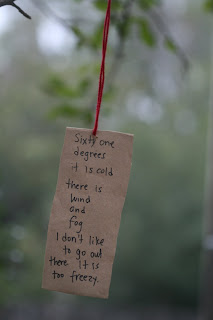 Sixty one
degrees
it is cold
there is
wind
and
fog
I don't like
to go out
there it is
too freezy.